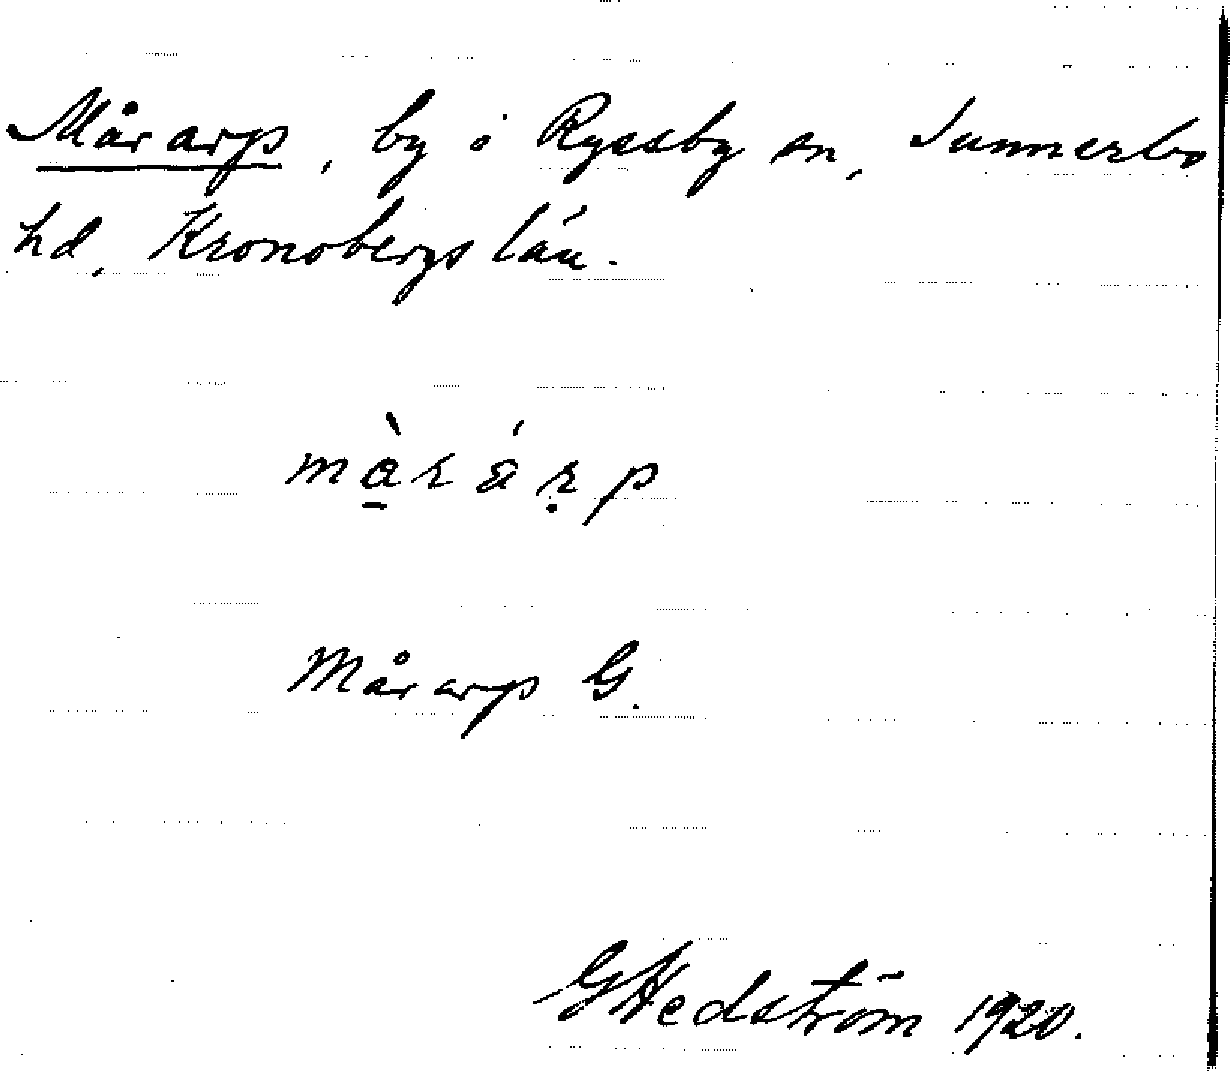 Mårarp, by i Ryssby sn, Sunnerbo
hd, Kronobergs län.
màrárp
Mårarp G.
G Hedström 1920.